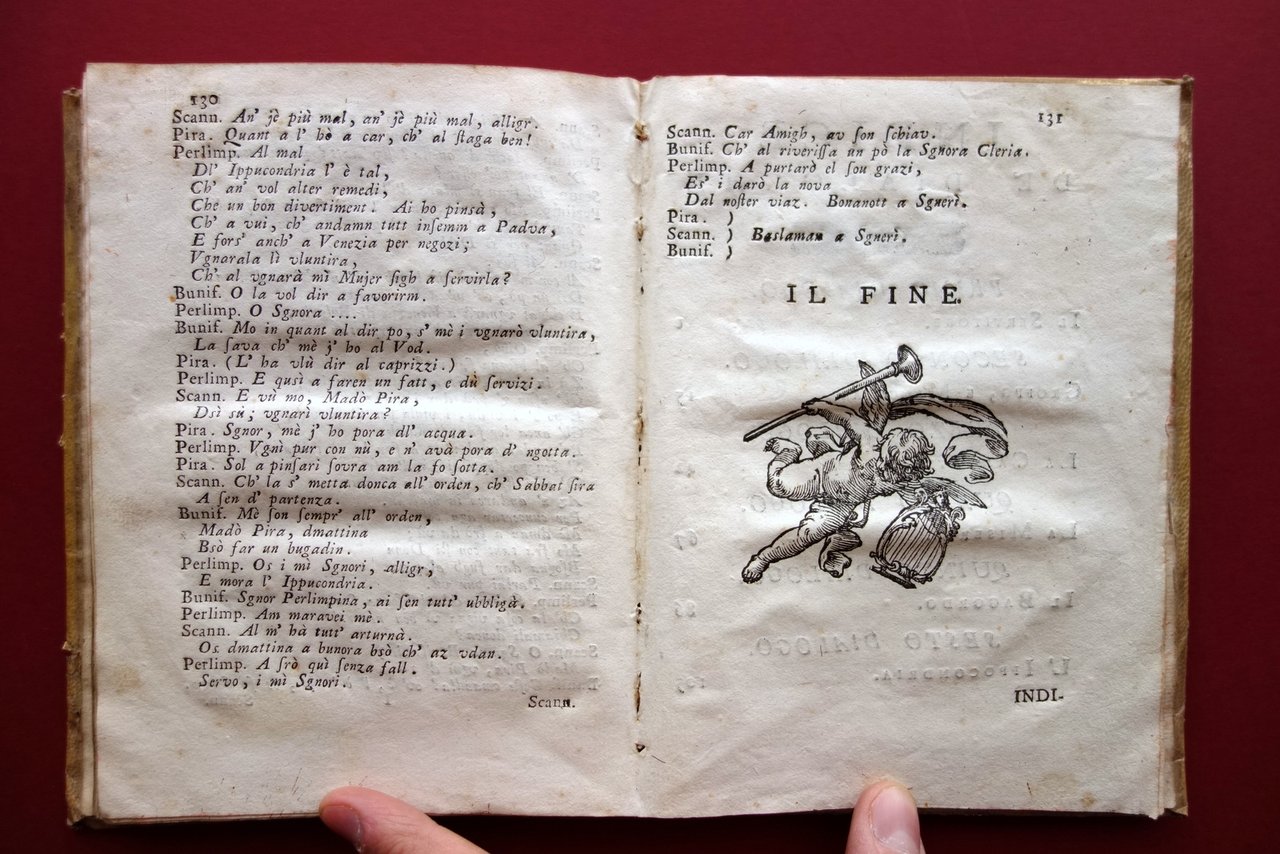 130
Scann. An' jè più mal, an' jè più mal, alligr.
Pira. Quant a l' hò a car, ch' al ſtaga ben!
Perlimp. Al mal
Dl' Ippucondria l' è tal,
Ch' an' vol alter remedi,
Che un bon divertiment. Ai ho pinsà,
Ch' a vui, ch' andamn tutt inſemm a Padva,
E forſ' anch' a Venezia per negozi;
Vgnarala lì vluntira,
Ch' al vgnarà mì Mujer ſigh a ſervirla?
Bunif. O la vol dir a favorirm.
Perlimp. O Sgnora ....
Bunif. Mo in quant al dir po, s' mè i vgnarò vluntira,
La ſava ch' mè j' ho al Vod.
Pira. (L' ha vlù dir al caprizzi.)
Perlimp. E qusì a faren un fatt, e dù ſervizi.
Scann. E vù mo, Madò Pira,
Dsì sù; vgnarì vluntira?
Pira. Sgnor, mè j' ho pora dl' acqua.
Perlimp. Vgnì pur con nù, e n' avà pora d' ngotta.
Pira. Sol a pinſari ſovra am la fo ſotta.
Scann. Ch' la s' metta donca all' orden, ch' Sabbat ſira
A ſen d' partenza.
Bunif. Mè ſon ſempr' all' orden,
Madò Pira, dmattina
Bsò far un bugadin.
Perlimp. Os i mì Sgnori, alligr;
E mora l' Ippucondria.
Bunif. Sgnor Perlimpina, ai ſen tutt' ubbligà.
Perlimp. Am maravei mè.
Scann. Al m' hà tutt' arturnà.
Os dmattina a bunora bsò ch' az vdan.
Perlimp. A ſrò quì ſenza fall.
Servo, i mì Sgnori.
Scann.
131
Scann. Car Amigh, av ſon ſchiav.
Bunif. Ch' al riveriſſa un pò la Sgnora Cleria.
Perlimp. A purtarò el ſou grazi,
Es' i darò la nova
Dal noſter viaz. Bonanott a Sgnerì.
Pira. )
Scann. ) Baslaman a Sgnerì.
Bunif. )
IL FINE.
INDI-